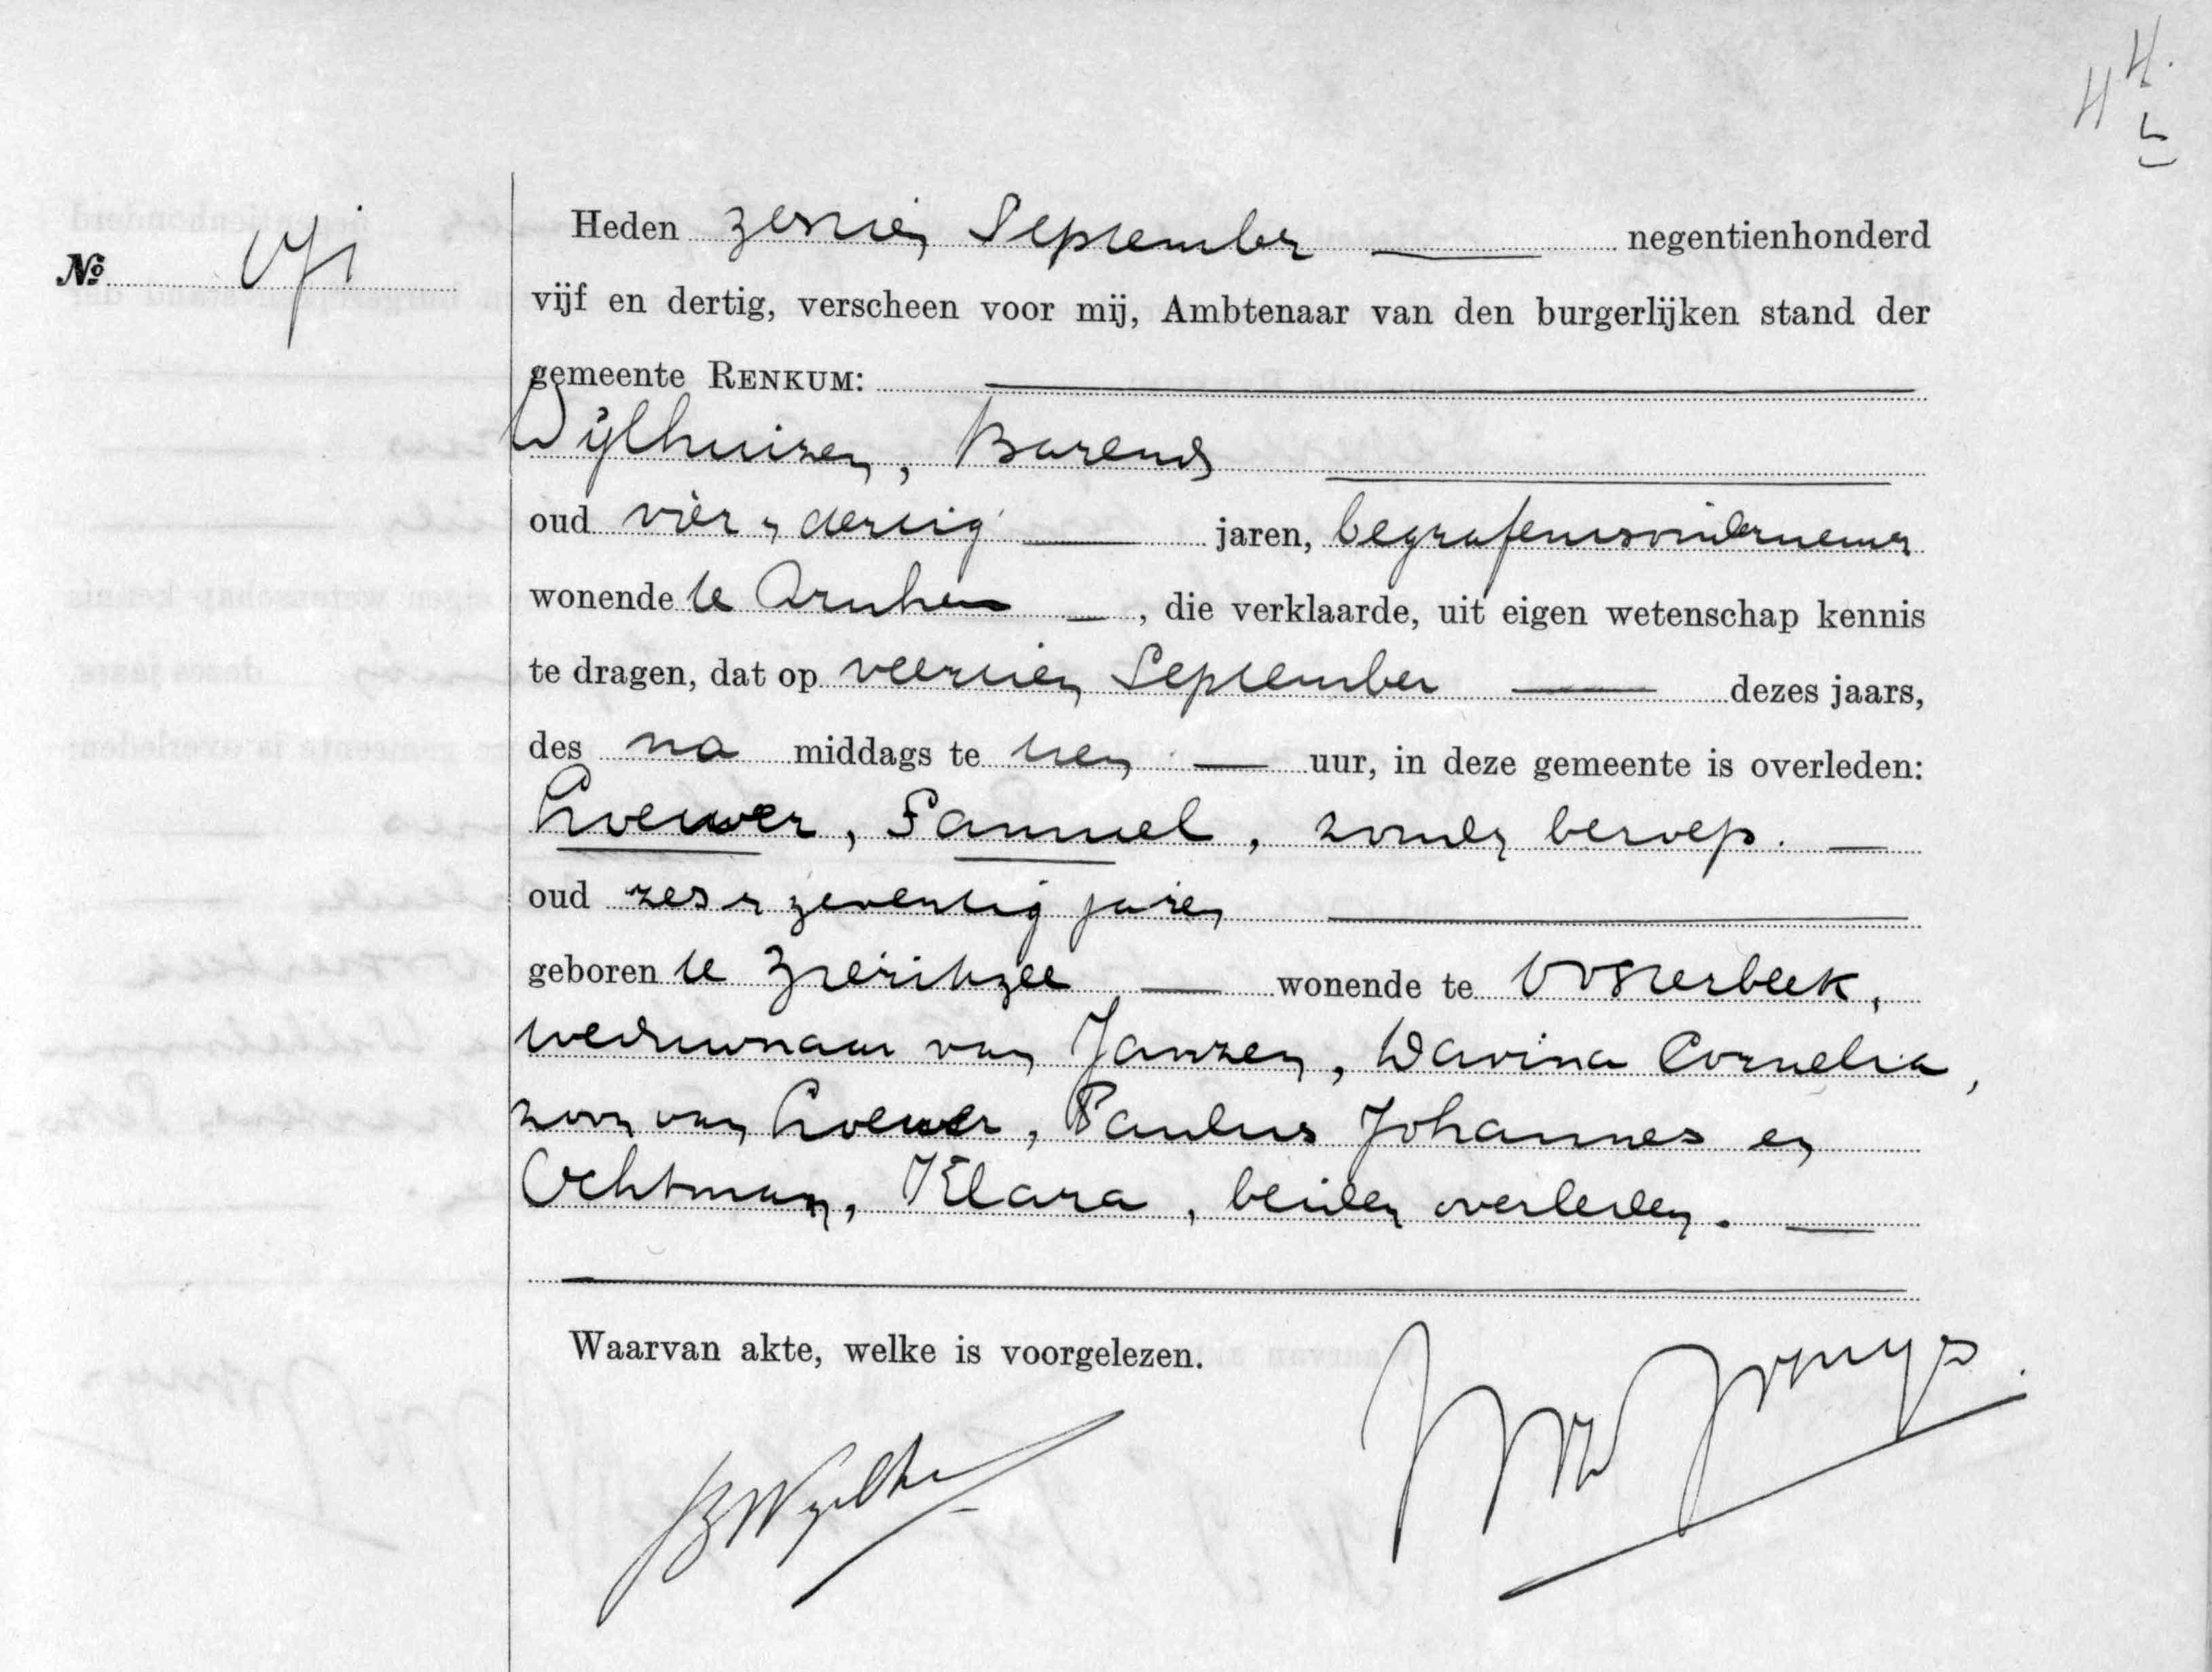 Heden zestien September negentienhonderd
No
vijf en dertig, verscheen voor mij, Ambtenaar van den burgerlijken stand der
gemeente RENKUM:
Wijlhuizen, Barend
oud vier en dertig jaren, begrafenisondernemer
wonende te Arnhem, die verklaarde, uit eigen wetenschap kennis
te dragen, dat op veertien September dezes jaars,
des na middags te tien uur, in deze gemeente is overleden:
Loewer, Samuel, zonder beroep.
oud zes en zeventig jaren
geboren te Zierikzee wonende te Oosterbeek,
weduwnaar van Janzen, Davina Cornelia,
zoon van Loewer, Paulus Johannes en
Ochtman, Klara, beiden overleden.
Waarvan akte, welke is voorgelezen.